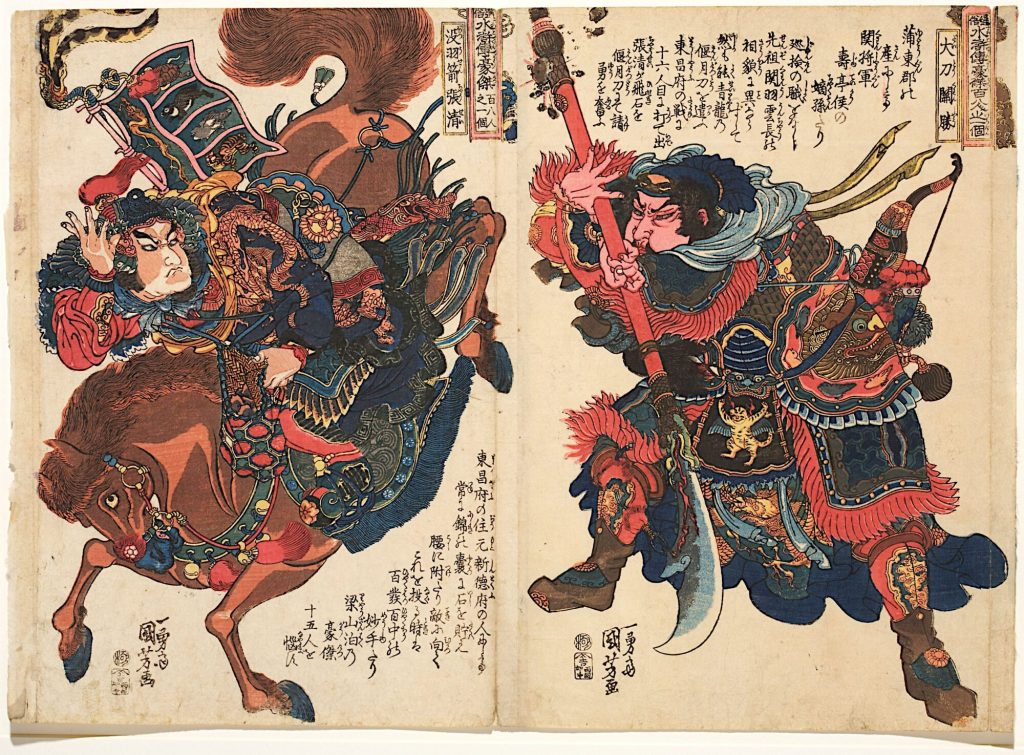 通俗水滸傳豪傑百八人之一個
大刀關勝
蒲東郡の
産にして
関将軍
壽亭侯の
嫡孫なり
巡檢の職となり
先祖関羽雲長の
相貌に異らずして
然も能青龍の
偃月刀を遣ふ
東昌府の戦に
十六人目に打て出
張清が飛石を
偃月刀にて請
勇を奮ふ
一勇斎
國芳画
通俗水滸傳豪傑百八人之一個
没羽箭張清
東昌府の住元新徳府の人
常に錦の嚢に石を貯え
腰に附たり敵に向て
これを投る時は
百發百中の
妙手なり
梁山泊の
豪傑
十五人を
悩す
一勇斎
國芳画